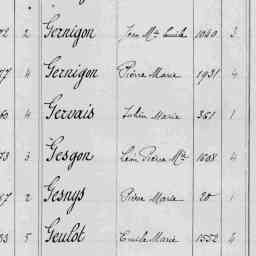 2 2 Gernigon Jean Mie Emile 1040 3
77 4 Gernigon Pierre Marie 1931 4
60 4 Gervais Julien Marie 361 1
73 3 Gesgon Léon Pierre Mie 1608 4
67 2 Gesnys Pierre Marie 20 1
33 5 Geulot Emile Marie 1552 4